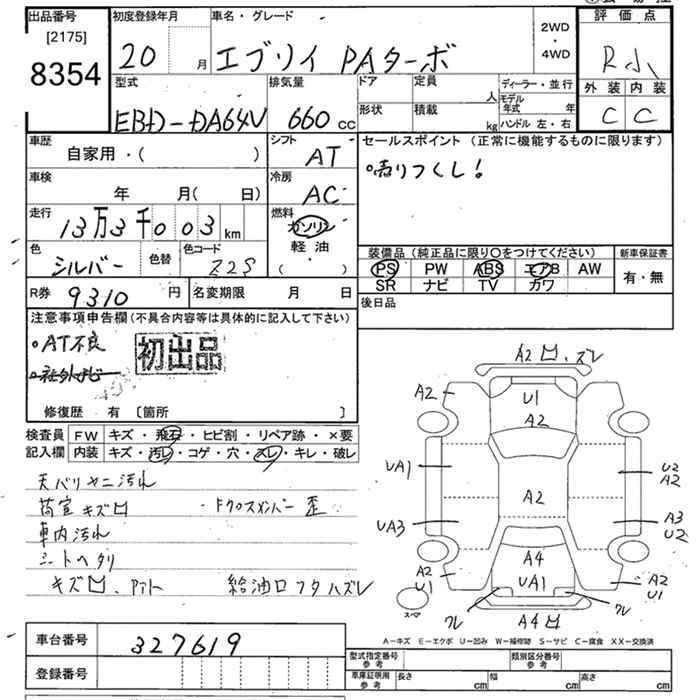 出品番号
[2175]
8354
初度登録年月
20 月
車名・グレード
エブリイ PAターボ
2WD
・
4WD
評価点
R小
外装 内装
C C
型式
EBD-DA64V
排気量
660 cc
ドア
形状
定員
人
積載
kg
ディーラー・並行
モデル年式 年
ハンドル 左・右
車歴
自家用・( )
シフト
AT
車検
年 月( 日)
冷房
AC
走行
13万3千003 km
燃料
ガソリン
軽油
( ・ )
色
シルバー
色替
色コード
Z2S
セールスポイント(正常に機能するものに限ります)
売りつくし!
装備品(純正品に限り○をつけてください)
PS PW ABS エアB AW
SR ナビ TV カワ
新車保証書
有・無
後日品
R券 9310 円
名変期限 月 日
注意事項申告欄(不具合内容等は具体的に記入して下さい)
・AT不良
・社外ナビ
初出品
修復歴 有 〔箇所 〕
検査員
記入欄
FW キズ・飛石・ヒビ割・リペア跡・×要
内装 キズ・汚レ・コゲ・穴・スレ・キレ・破レ
天バリヤニ汚れ
荷室キズ凹 ・Fクロスメンバー歪
車内汚れ
シートヘタリ
キズ凹、 給油口フタハズレ
A2 凹、ズレ
A2
U1
A2
A2
UA1
U2
A2
A2
UA3
A3
U2
A4
UA1
A2
U1
A2
U1
ワレ
ワレ
A4凹
スペア
A-キズ E-エクボ U-凹み W-補修跡 S-サビ C-腐食 XX-交換済
車台番号 327619
登録番号
型式指定番号
参考
類別区分番号
参考
車庫証明用
参考
長さ cm
幅 cm
高さ cm